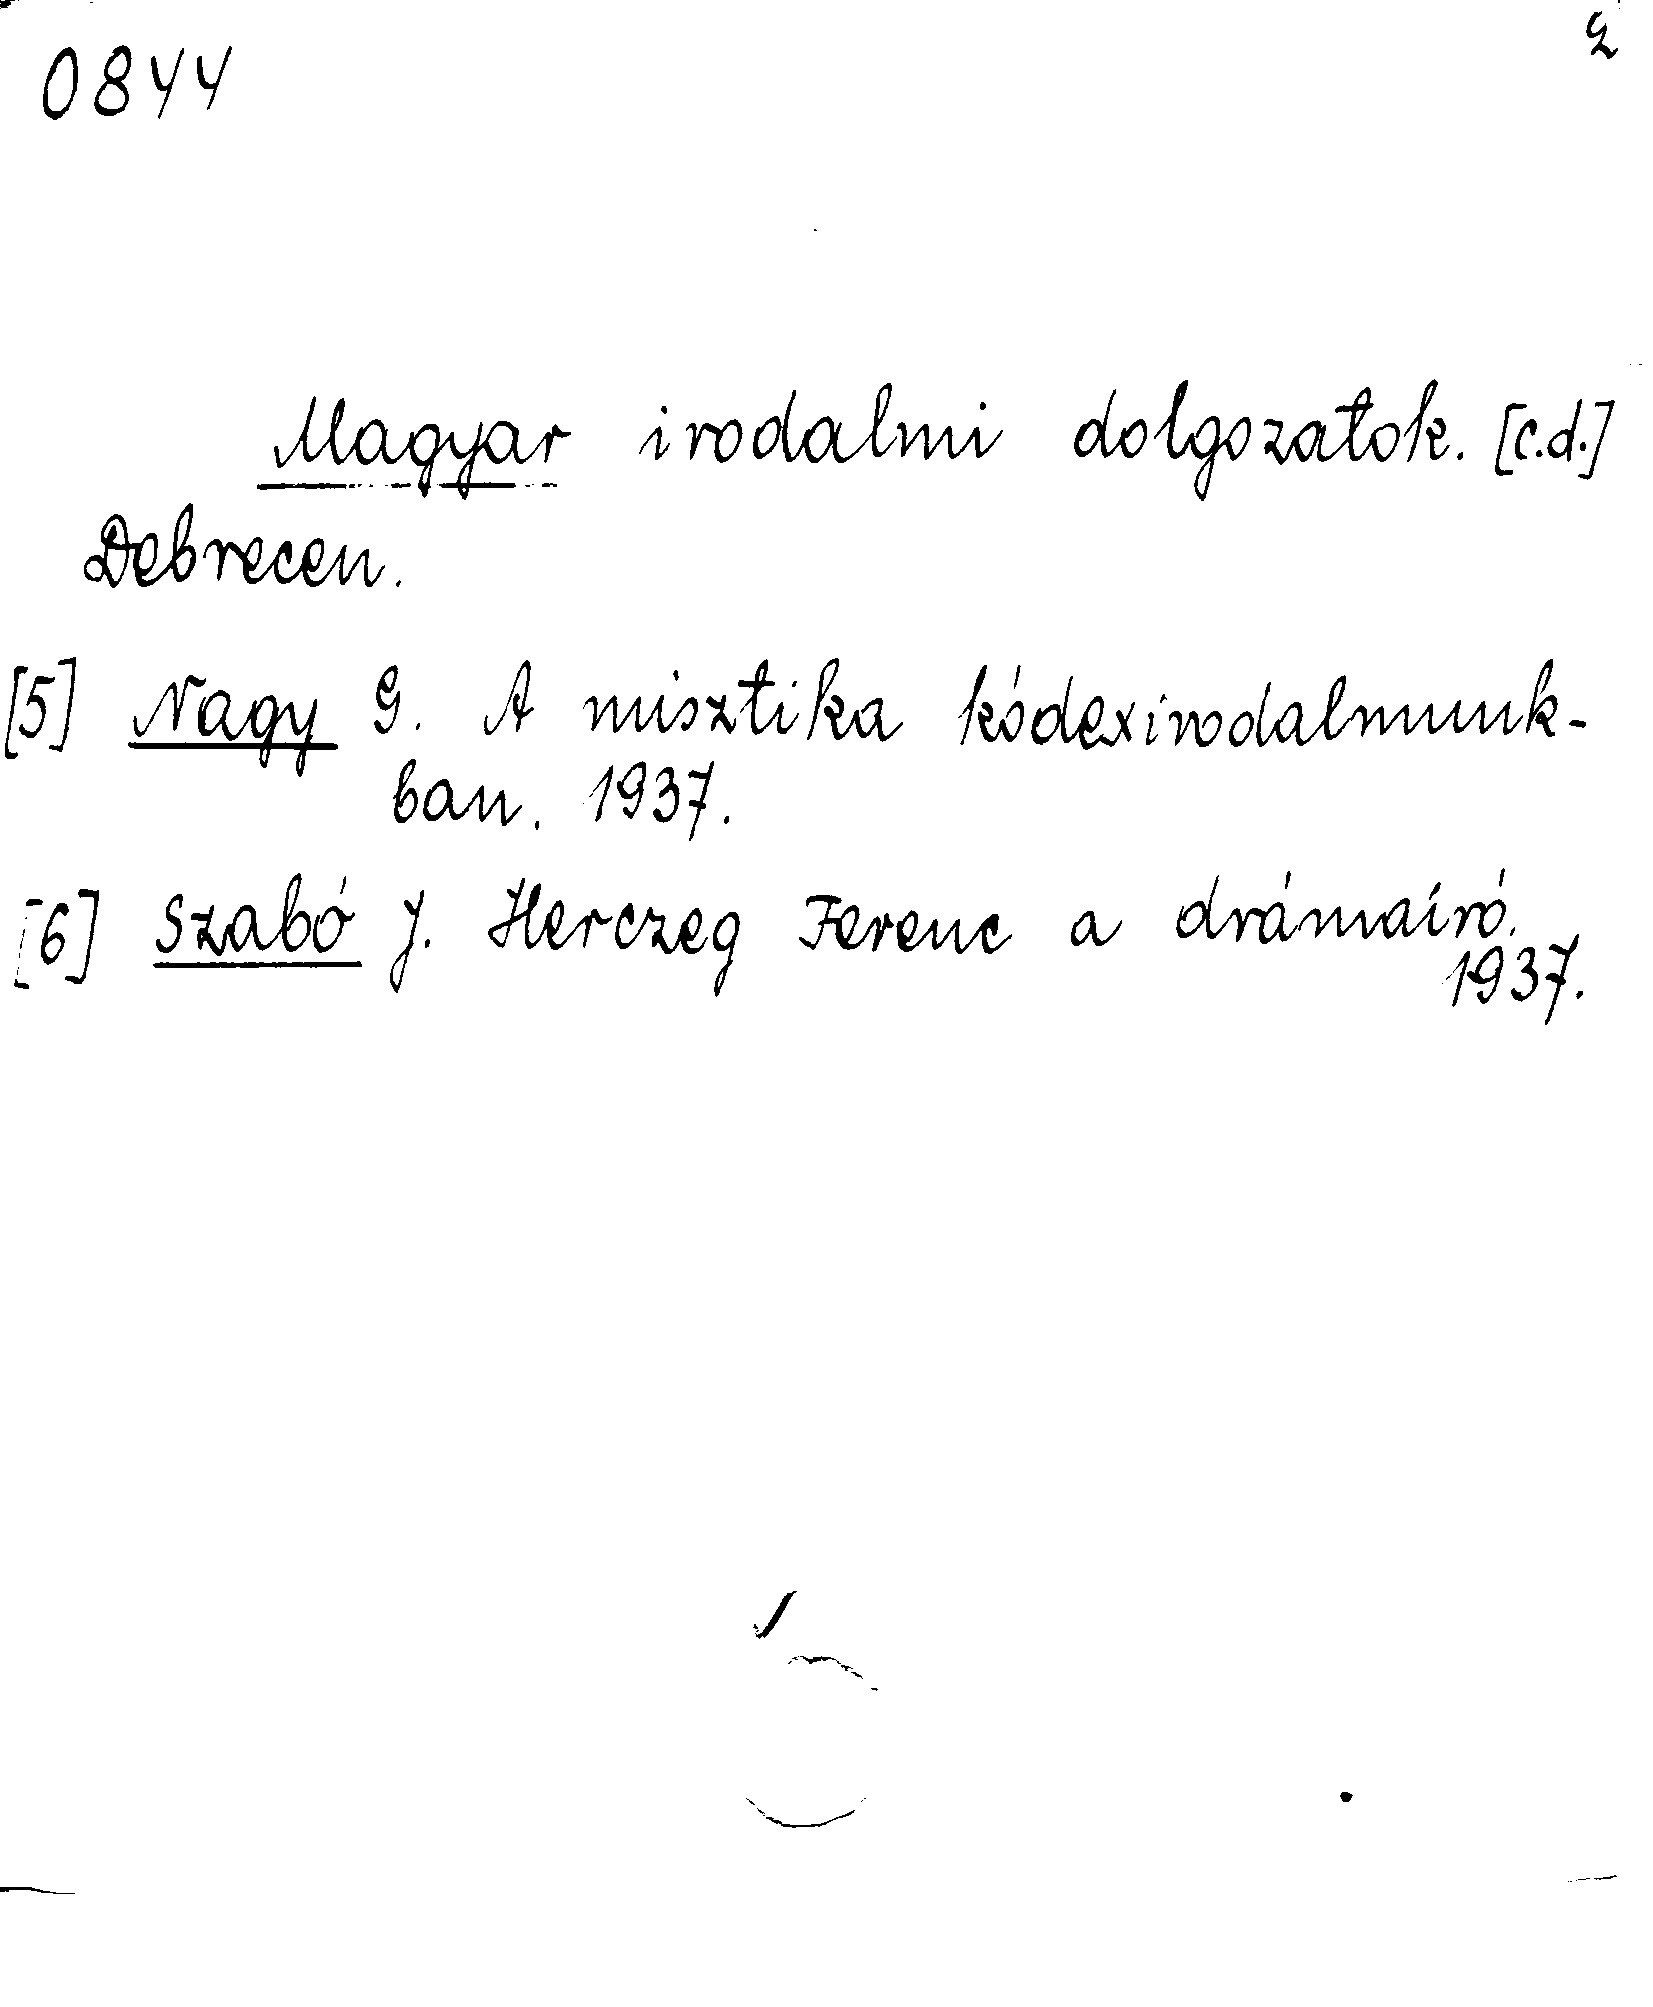 0844
2
Magyar irodalmi dolgozatok. [c.d.]
Debrecen.
[5] Nagy G. A misztika kódexirodalmunk-
ban. 1937.
[6] Szabó J. Herczeg Ferenc a drámaíró.
1937.